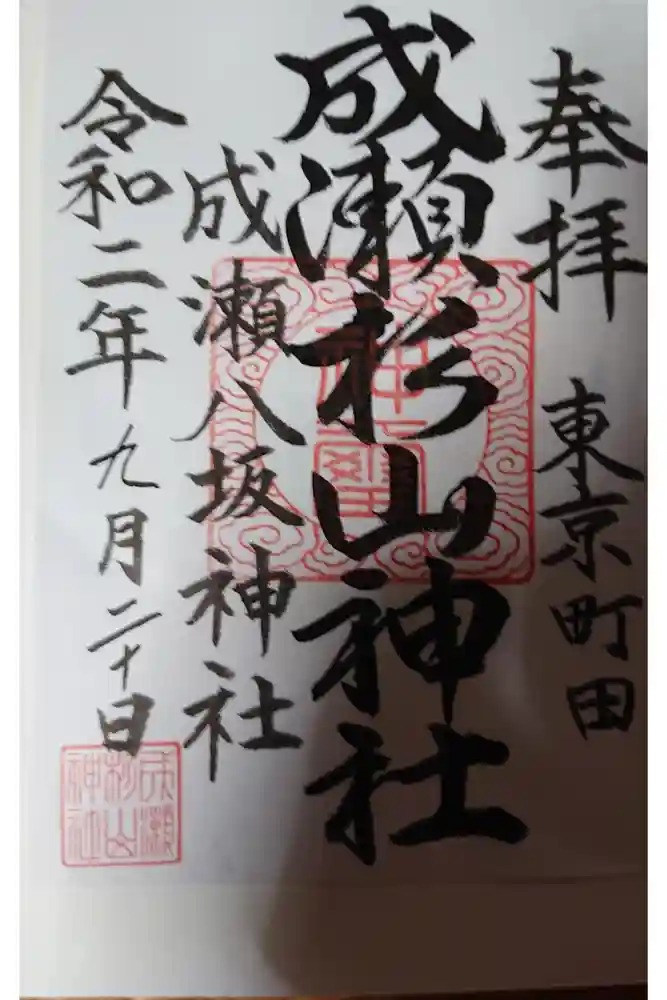 奉拝
東京町田
成瀬杉山神社
成瀬八坂神社
令和二年九月二十日
成瀬
杉山
神社